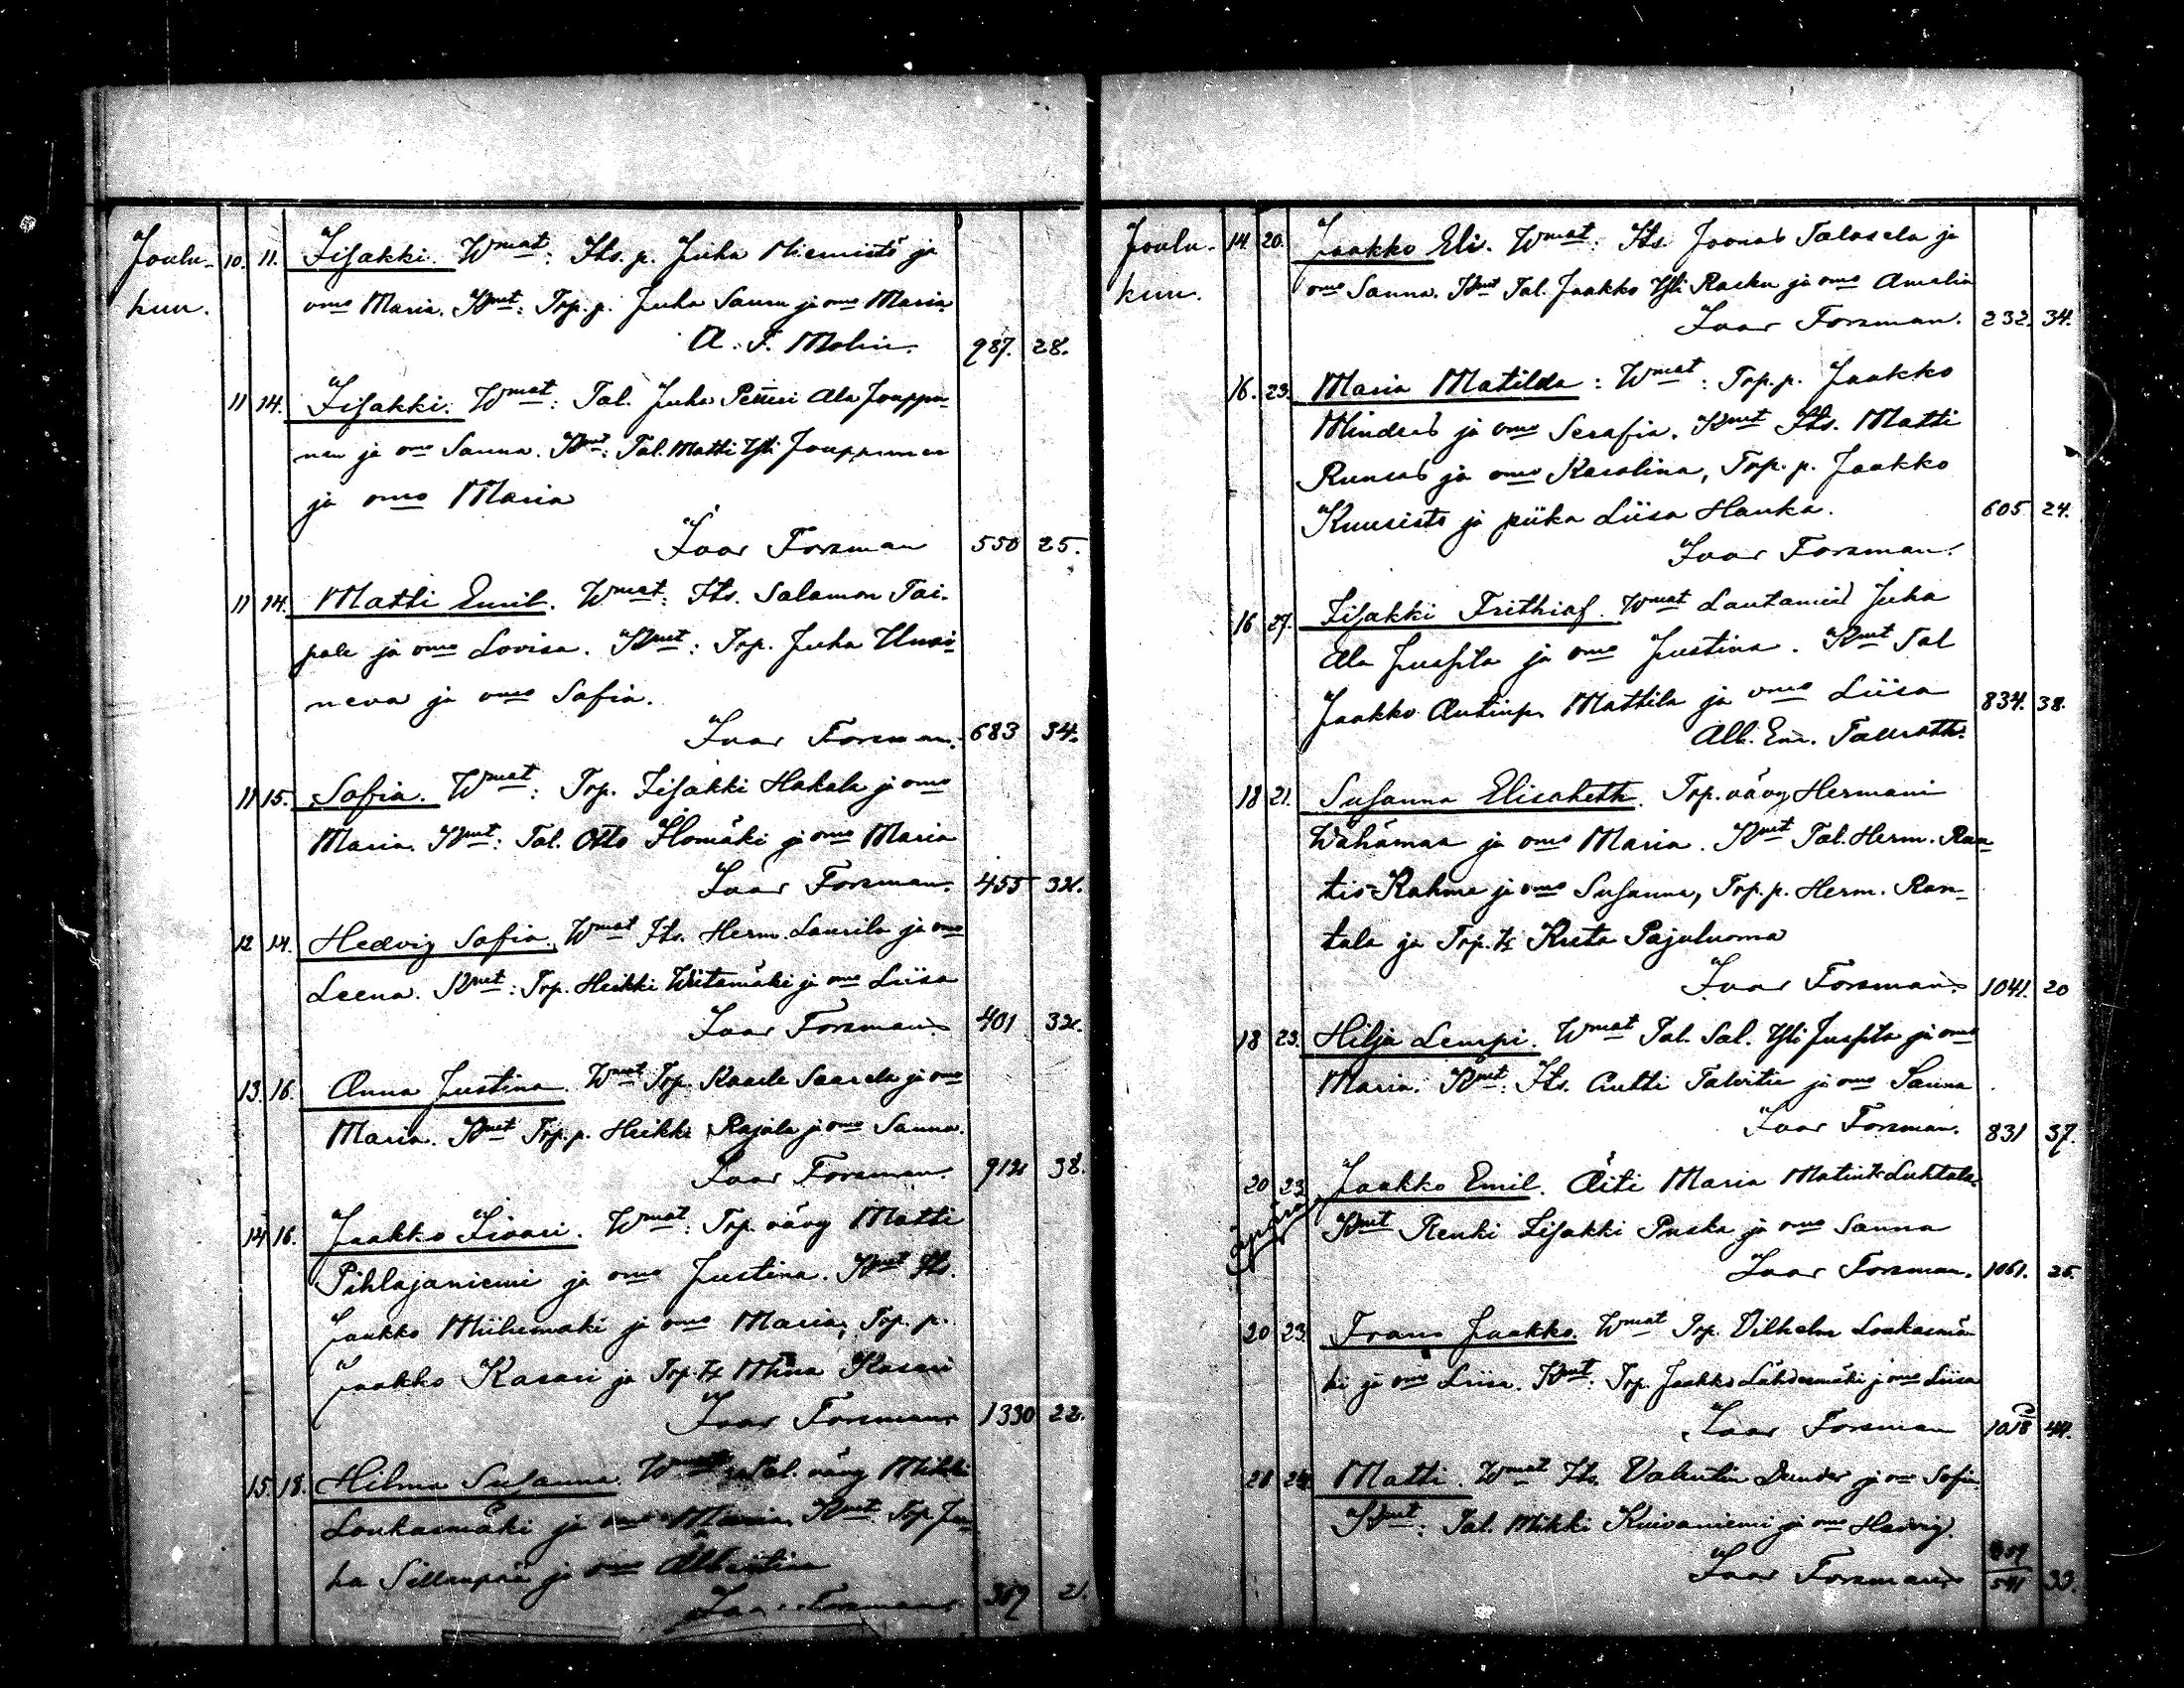 Joulu- 10. 11. Iisakki. Wmat: Its. p. Juha Niemistö ja
kuu. vmo Maria. Kmt: Trp. p. Juha Saunu ja vmo Maria.
A. F. Molin. 987. 28.
11 14. Iisakki. Wmat: Tal. Juha Petteri Ala Jouppi-
nen ja vmo Sanna. Kmt: Tal. Matti Yli Jouppinen
ja vmo Maria
Ivar Forsman 550 25.
11 14. Matti Emil. Wmat: Its. Salamon Tai-
pale ja vmo Lovisa. Kmt: Trp. Juha Uusi-
neva ja vmo Sofia.
Ivar Forsman. 683 34.
11 15. Sofia. Wmat: Trp. Iisakki Hakala ja vmo
Maria. Kmt: Tal. Otto Ilomäki ja vmo Maria
Ivar Forsman. 455 32.
12 14. Hedvig Sofia. Wmat Its. Herm. Laurila ja vmo
Leena. Kmt: Trp. Heikki Wiitamäki ja vmo Liisa
Ivar Forsman 401 32.
13. 16. Anna Justina. Wmat Trp. Kaarle Saarela ja vmo
Maria. Kmt Trp. p. Heikki Rajala ja vmo Sanna.
Ivar Forsman. 912 38.
14 16. Jaakko Iivari. Wmat: Trp. vävy Matti
Pihlajaniemi ja vmo Justina. Kmt Its.
Jaakko Miilumäki ja vmo Maria, Trp. p.
Jaakko Kasari ja Trp. tr Miina Kasari
Ivar Forsman 1330 22.
15. 18. Hilma Susanna. Wmat Tal. vävy Mikki
Loukasmäki ja vmo Maria. Kmt. Trp Ju-
ha Sillanpää ja vmo Albertina
Ivar Forsman 369 21.
Joulu- 14 20. Jaakko Eli. Wmat: Its. Joonas Talasela ja
kuu. vmo Sanna. Kmt Tal. Jaakko Yli Rasku ja vmo Amalia
Ivar Forsman. 232. 34.
16. 23. Maria Matilda: Wmat: Trp. p. Jaakko
Mindres ja vmo Serafia. Kmt Its. Matti
Runsas ja vmo Karolina, Trp. p. Jaakko
Kuusisto ja piika Liisa Hauka. 605 24.
Ivar Forsman.
16 27. Iisakki Frithiof. Wmat Lautamies Juha
Ala Juspila ja vmo Justina. Kmt Tal
Jaakko Antinp. Mattila ja vmo Liisa 834. 38.
Alb. Em.
18 21. Susanna Elisabeth. Trp. vävy Hermani
Wähämaa ja vmo Maria. Kmt Tal. Herm. Ran-
tis-Rahma ja vmo Susanna, Trp. p. Herm. Ran-
tala ja Trp. tr Kreta Pajuluoma
Ivar Forsman 1041. 20
18 23. Hilja Lempi. Wmat Tal. Sal. Yli Juspila ja vmo
Maria. Kmt: Its. Antti Talvitie ja vmo Sanna
Ivar Forsman. 831 37.
20 23 Jaakko Emil. Äiti Maria Matint. Luhtala.
Kmt Renki Iisakki Puska ja vmo Sanna
Ivar Forsman. 1061. 25.
20 23 Frans Jaakko. Wmat Trp. Vilhelm Loukasmä-
ki ja vmo Liisa. Kmt: Trp. Jaakko Lähdesmäki ja vmo Liisa
Ivar Forsman 1018 44.
20 24. Matti. Wmat Its. Valentin Dunder ja vmo Sofia
Kmt: Tal. Mikki Kuivaniemi ja vmo Hedvig.
Ivar Forsman 541 33.